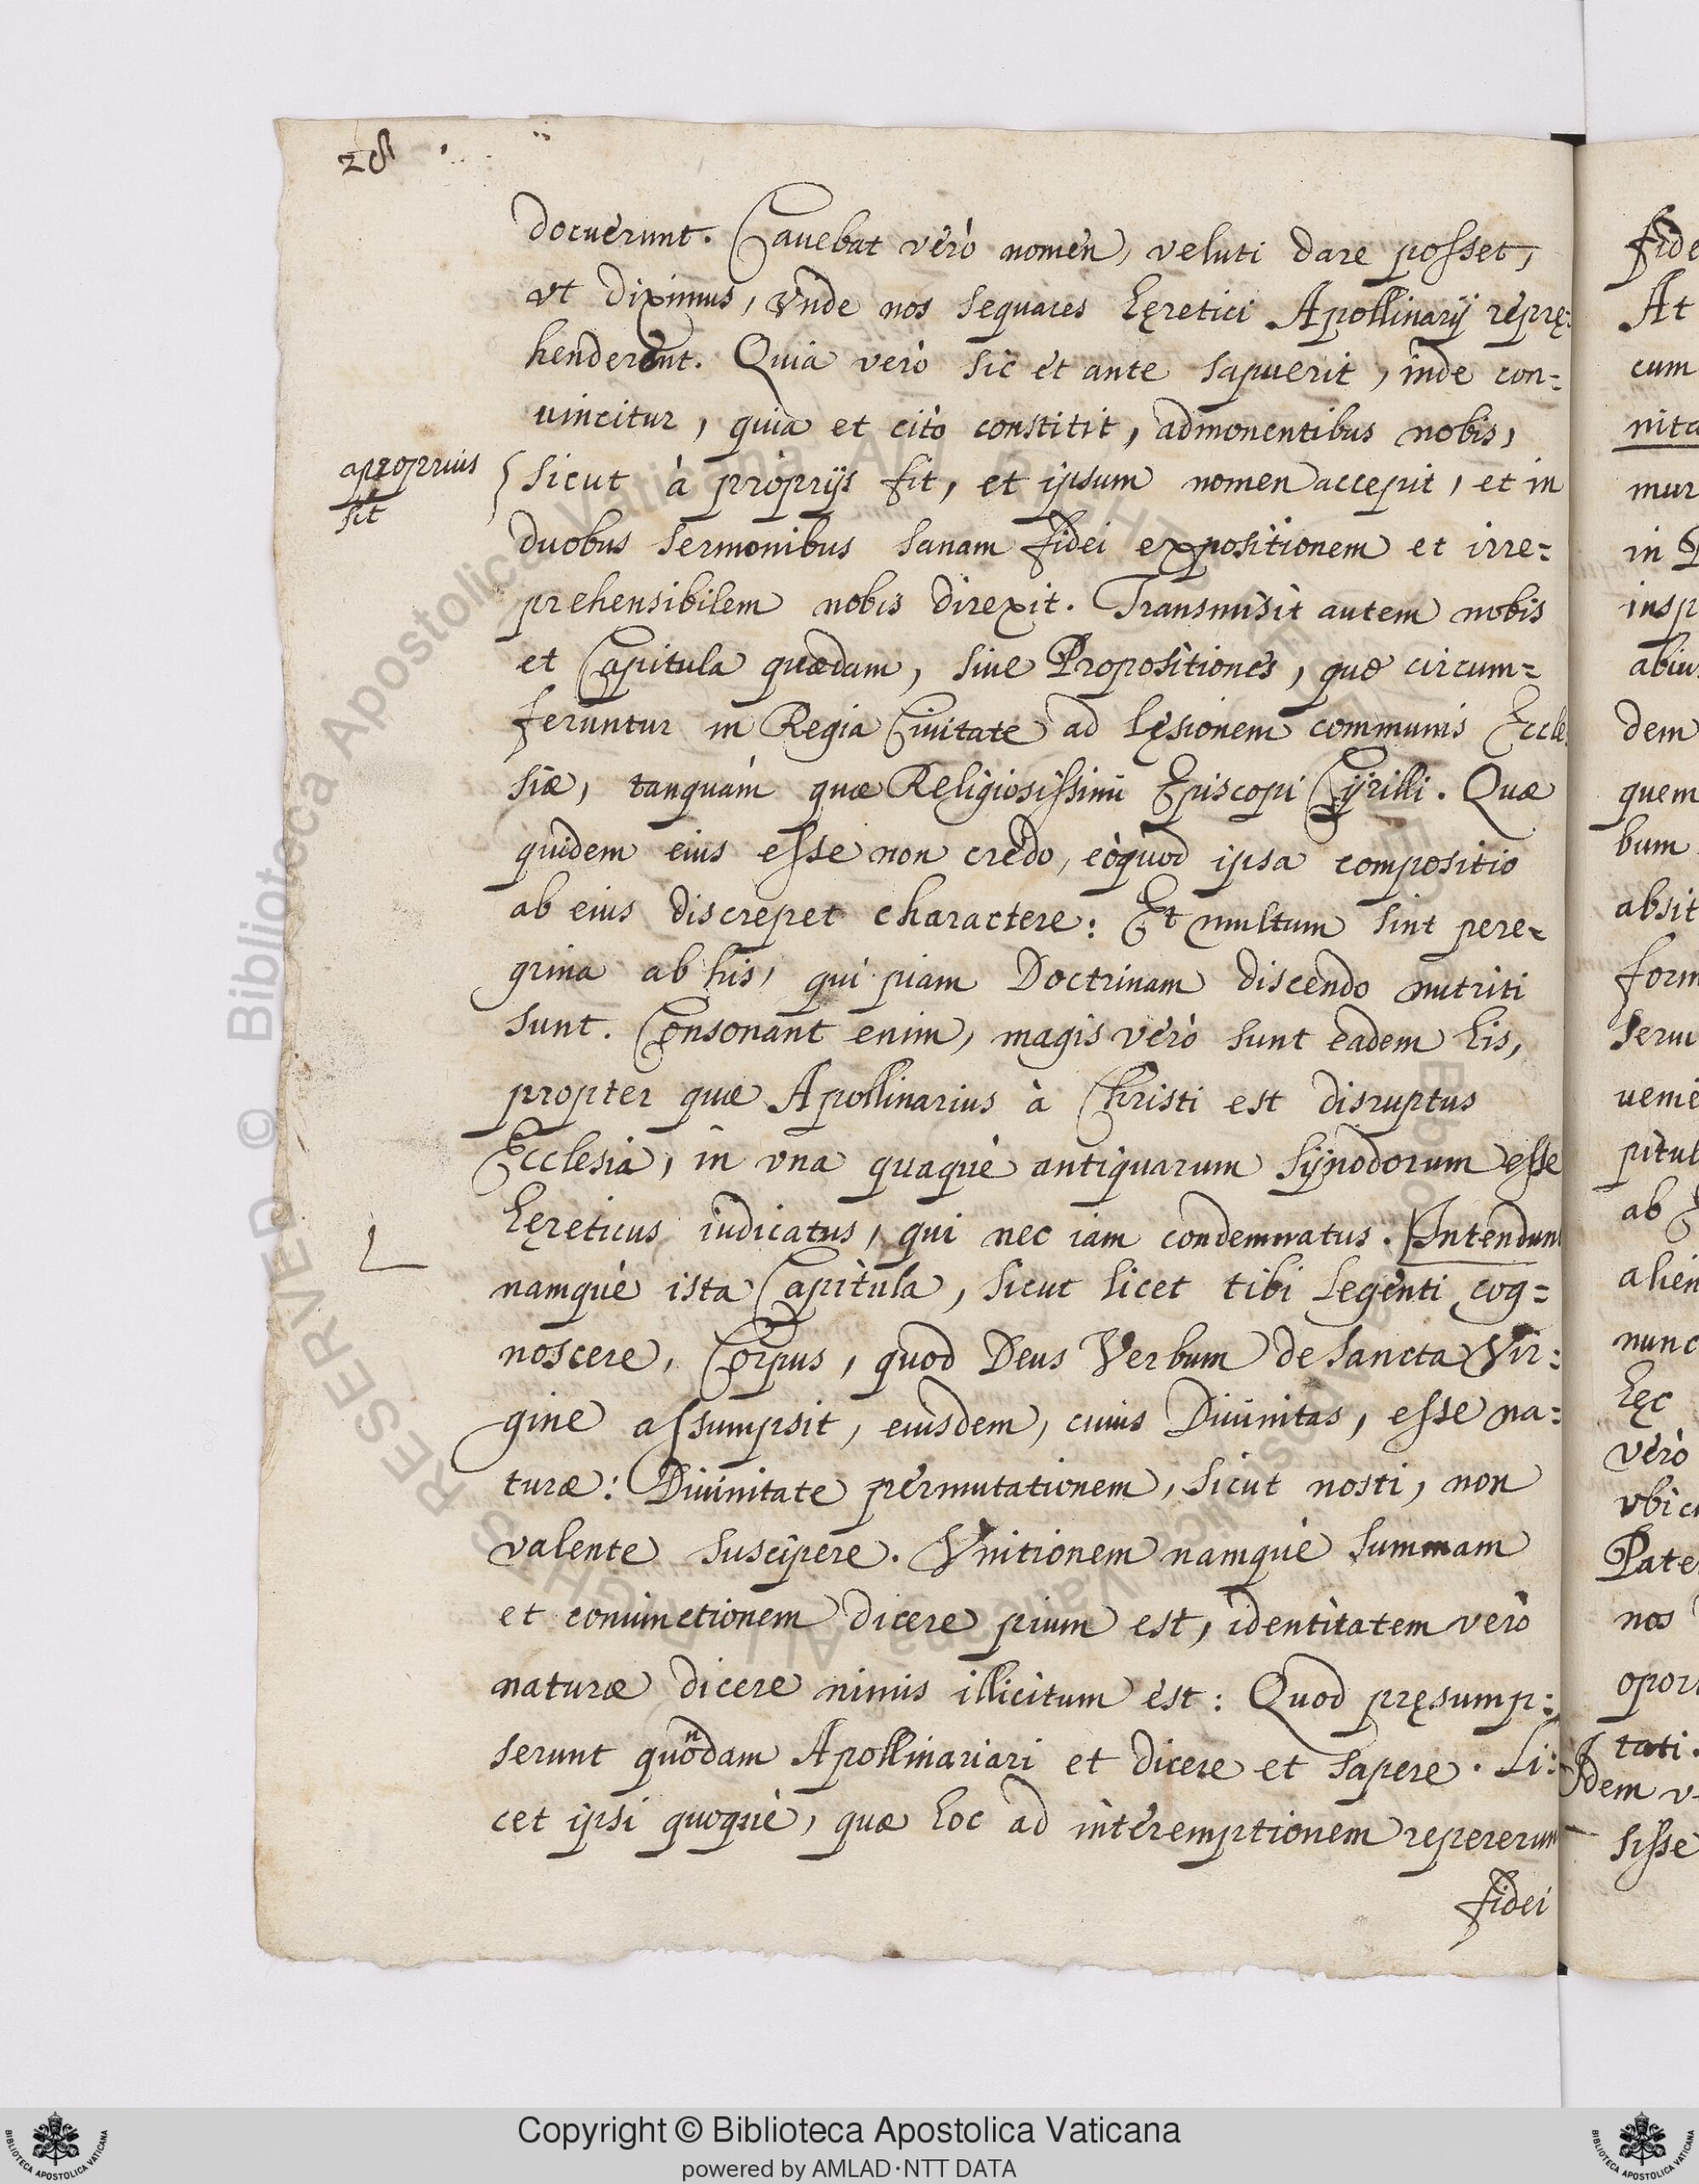 28
docuerunt. Cauebat verò nomen, veluti dare posset,
vt diximus, vnde nos sequaces hęretici Apollinarij reprę:
henderent. Quia verò sic et ante sapuerit, inde con=
uincitur, quia et citò constitit, admonentibus nobis,
aproprius
sit
sicut à proprijs fit, et ipsum nomen accepit, et in
duobus sermonibus sanam fidei expositionem et irre=
prehensibilem nobis direxit. Transmisit autem nobis
et Capitula quædam, siue Propositiones, quæ circum=
feruntur in Regia Ciuitate ad lęsionem communis Eccle
siæ, tanquàm quæ Religiosissimi Episcopi Cyrilli. Quæ
quidem eius esse non credo, eòquòd ipsa compositio
ab eius discrepet charactere: Et multum sint pere=
grina ab his, qui piam Doctrinam discendo nutriti
sunt. Consonant enim, magis verò sunt eadem his,
propter quæ Apollinarius à Christi est disruptus
Ecclesia, in vna quaque antiquarum synodorum esse
hęreticus iudicatus, qui nec iam condemnatus. Intendunt
namque ista Capitula, sicut licet tibi legenti cog=
noscere, Corpus, quod Deus Verbum de sancta Vir=
gine assumpsit, eiusdem, cuius Diuinitas, esse na=
turæ: Diuinitate permutationem, sicut nosti, non
valente suscipere. Vnitionem namque summam
et coniunctionem dicere pium est, identitatem verò
naturæ dicere nimis illicitum est: Quod pręsump=
serunt quondam Apollinariari et dicere et sapere. Li=
cet ipsi quoque, quæ hoc ad interemptionem repererunt
fidei
fide
At
cum
nita
mur
in P
insp
abiu
dem
quem
bum
absit
form
seru
uenie
pitul
ab E
alien
nunc
hęc
verò
vbicu
Pate
nos
opor
tati.
dem v
sisse
© Biblioteca Apostolica Vaticana ALL RIGHTS RESERVED
Copyright © Biblioteca Apostolica Vaticana
powered by AMLAD·NTT DATA
BIBLIOTECA APOSTOLICA VATICANA
BIBLIOTECA APOSTOLICA VATICANA